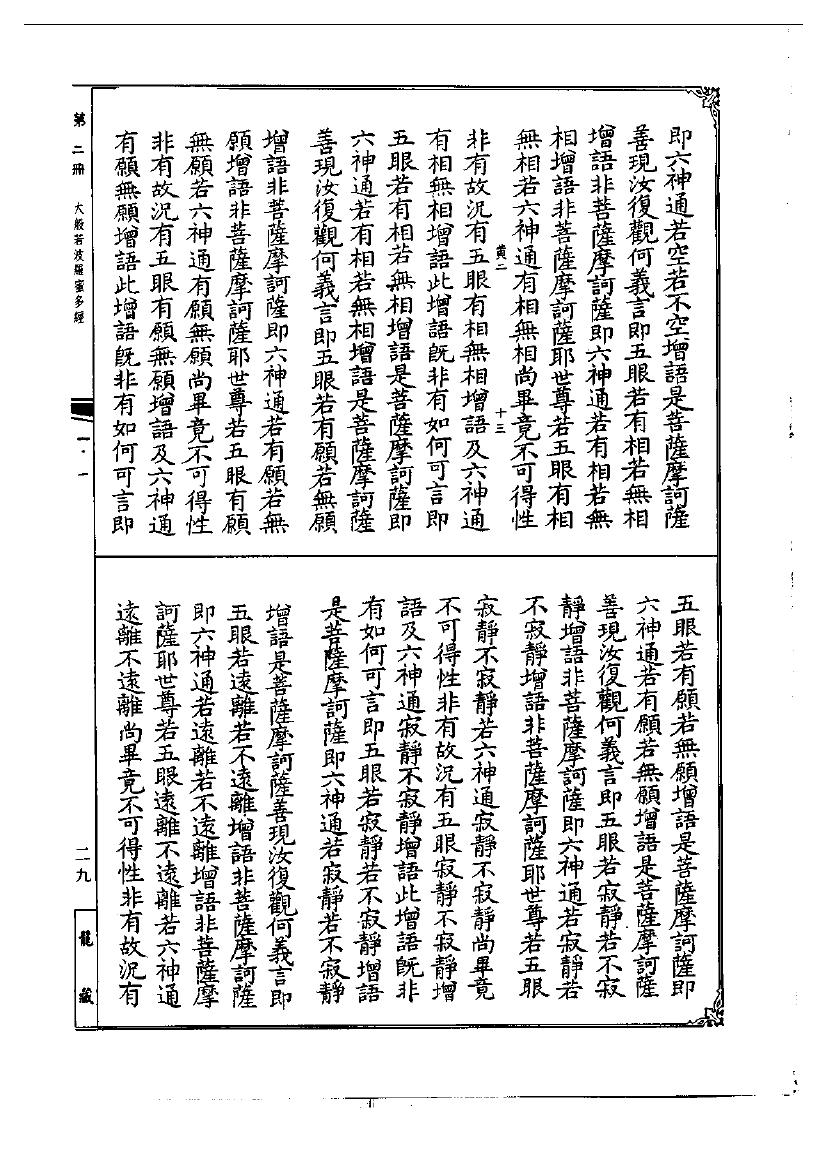 即六神通若空若不空增語是菩薩摩訶薩
善現汝復觀何義言即五眼若有相若無相
增語非菩薩摩訶薩即六神通若有相若無
相增語非菩薩摩訶薩耶世尊若五眼有相
無相若六神通有相無相尚畢竟不可得性
黄二 十三
非有故況有五眼有相無相增語及六神通
有相無相增語此增語旣非有如何可言即
五眼若有相若無相增語是菩薩摩訶薩即
六神通若有相若無相增語是菩薩摩訶薩
善現汝復觀何義言即五眼若有願若無願
增語非菩薩摩訶薩即六神通若有願若無
願增語非菩薩摩訶薩耶世尊若五眼有願
無願若六神通有願無願尚畢竟不可得性
非有故況有五眼有願無願增語及六神通
有願無願增語此增語旣非有如何可言即
五眼若有願若無願增語是菩薩摩訶薩即
六神通若有願若無願增語是菩薩摩訶薩
善現汝復觀何義言即五眼若寂靜若不寂
靜增語非菩薩摩訶薩即六神通若寂靜若
不寂靜增語非菩薩摩訶薩耶世尊若五眼
寂靜不寂靜若六神通寂靜不寂靜尚畢竟
不可得性非有故況有五眼寂靜不寂靜增
語及六神通寂靜不寂靜增語此增語旣非
有如何可言即五眼若寂靜若不寂靜增語
是菩薩摩訶薩即六神通若寂靜若不寂靜
增語是菩薩摩訶薩善現汝復觀何義言即
五眼若遠離若不遠離增語非菩薩摩訶薩
即六神通若遠離若不遠離增語非菩薩摩
訶薩耶世尊若五眼遠離不遠離若六神通
遠離不遠離尚畢竟不可得性非有故況有
第二冊 大般若波羅蜜多經
一·一
二九
龍藏